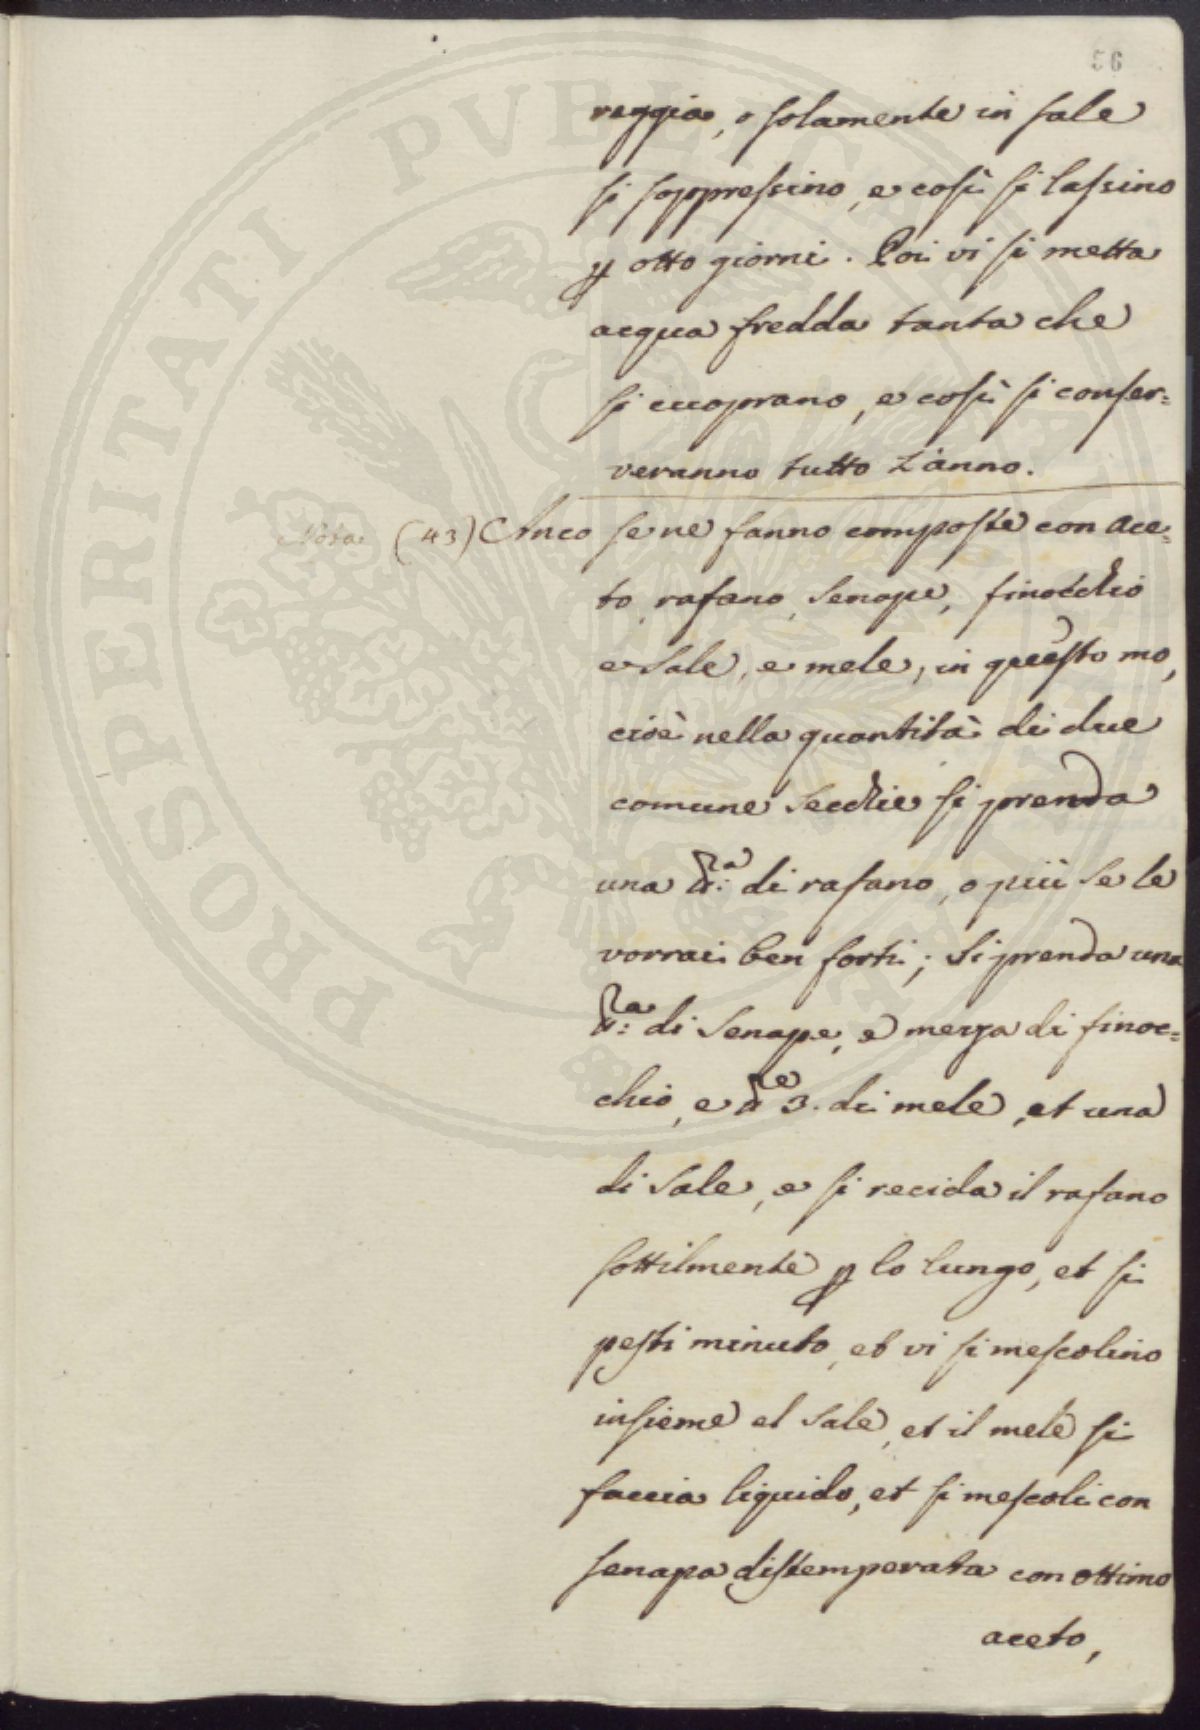 56
reggia, o solamente in sale
si soppressino, e così si lassino
p otto giorni. Poi vi si metta
acqua fredda tanta che
si cuoprano, e così si conser=
veranno tutto l'anno.
Nota (43) Anco se ne fanno composte con ace=
to, rafano, senape, finocchio
e sale, e mele, in questo mo,
cioè nella quantità di due
comune secchie si prenda
una di rafano, o più se le
vorrai ben forti; si prenda una
di senape, e mezza di finoc=
chio, e 3. di mele, et una
di sale, e si recida il rafano
sottilmente p lo lungo, et si
pesti minuto, et vi si mescolino
insieme el sale, et il mele si
faccia liquido, et si mescoli con
senapa distemperata con ottimo
aceto,
PROSPERITATI PVBLICAE AVGENDAE